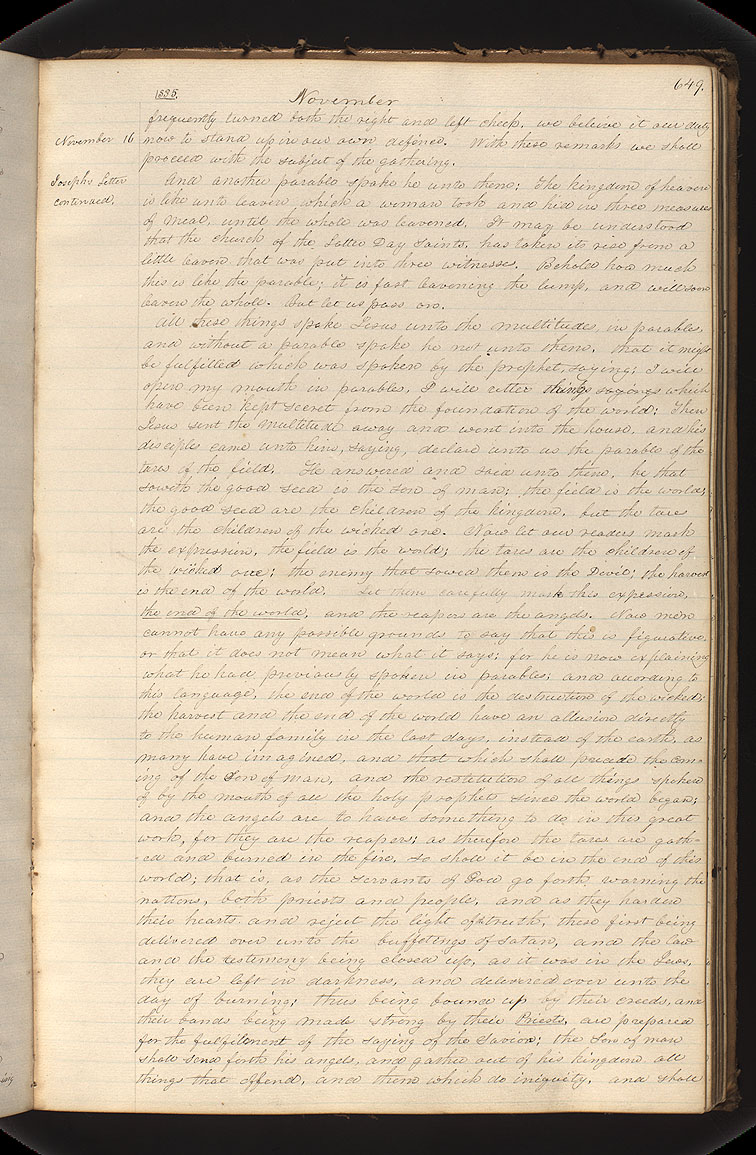 1835.
November
649.
frequently turned both the right and left cheek, we believe it our duty
November 16
now to stand up in our own defence. With these remarks we shall
proceed with the subject of the gathering.
Joseph's Letter
continued.
And another parable spake he unto them: The kingdom of heaven
is like unto leaven which a woman took and hid in three measures
of meal, until the whole was leavened. It may be understood
that the church of the Latter Day Saints, has taken its rise from a
little leaven that was put into three witnesses. Behold how much
this is like the parable; it is fast leavening the lump, and will soon
leaven the whole. But let us pass on.
All these things spake Jesus unto the multitudes, in parables,
and without a parable spake he not unto them, that it might
be fulfilled which was spoken by the prophet, saying; I will
open my mouth in parables, I will utter things sayings which
have been kept secret from the foundation of the world: Then
Jesus sent the multitude away and went into the house, and his
disciples came unto him, saying, declare unto us the parable of the
tares of the field. He answered and said unto them, he that
soweth the good seed is the son of man; the field is the world;
the good seed are the children of the kingdom, but the tares
are the children of the wicked one. Now let our readers mark
the expression, the field is the world; the tares are the children of
the wicked one; the enemy that sowed them is the Devil; the harvest
is the end of the world. Let them carefully mark this expression,
the end of the world, and the reapers are the angels. Now men
cannot have any possible grounds to say that this is figurative,
or that it does not mean what it says: for he is now explaining
what he had previously spoken in parables; and according to
this language, the end of the world is the destruction of the wicked;
the harvest and the end of the world have an allusion directly
to the human family in the last days, instead of the earth, as
many have imagined, and that which shall precede the com-
ing of the Son of man, and the restitution of all things spoken
of by the mouth of all the holy prophets since the world began;
and the angels are to have something to do in this great
work, for they are the reapers: as therefore the tares are gath-
ed and burned in the fire, so shall it be in the end of this
world; that is, as the servants of God go forth warning the
nations, both priests and people, and as they harden
their hearts and reject the light of truth, these first being
delivered over unto the buffetings of Satan, and the law
and the testimony being closed up, as it was in the Jews,
they are left in darkness, and delivered over unto the
day of burning; thus being bound up by their creeds, and
their bands being made strong by their Priests, are prepared
for the fulfilment of the saying of the Savior; the Son of man
shall send forth his angels, and gather out of his kingdom all
things that offend, and them which do iniquity, and shall